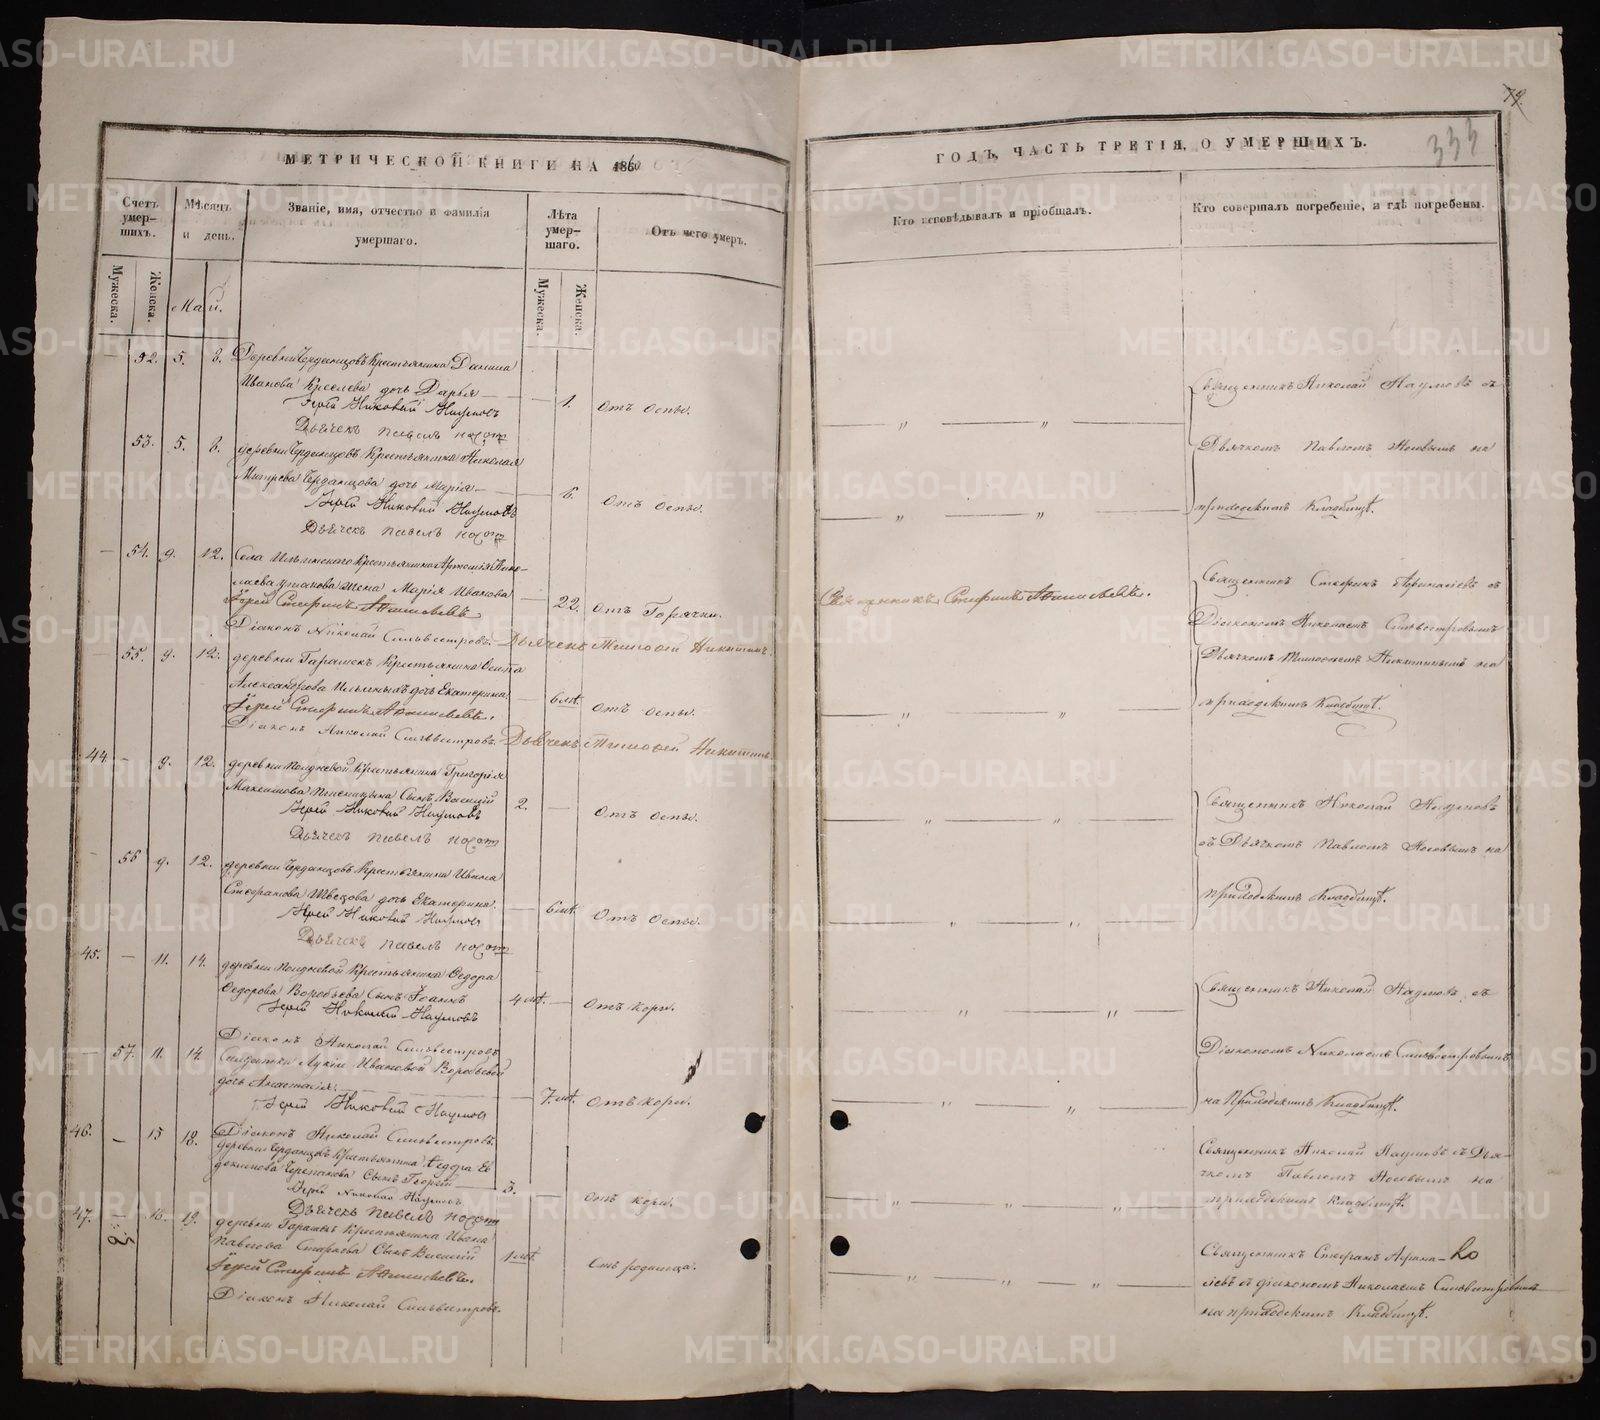 МЕТРИЧЕСКОЙ КНИГИ НА 1860
ГОДЪ, ЧАСТЬ ТРЕТІЯ, О УМЕРШИХЪ.
79.
333
Счетъ умер-шихъ.
Мѣсяцъ и день.
Званіе, имя, отчество и фамилія умершаго.
Лѣта умер-шаго.
Отъ чего умеръ.
Кто исповѣдывалъ и пріобщалъ.
Кто совершалъ погребеніе, и гдѣ погребены.
Мужеска.
Женска.
Май.
Мужеска.
Женска.
— 52. 5. 8. Деревни Черданцовъ Крестьянина Данила
Иванова Киселева дочь Дарья — — 1. отъ оспы.
Іерей Николай Наумовъ
Дьячекъ Павелъ
53. 5. 8. деревни Черданцовъ Крестьянина Николая
Черданцова дочь Марія — — 6. отъ оспы.
Іерей Николай Наумовъ
Дьячекъ Павелъ
— 54. 9. 12. Села Ильинскаго Крестьянина Нико-
лаева жена Марія Иванова — 22. отъ Горячки.
Іерей Стефанъ
Діаконъ Николай Сильвестровъ. Дьячекъ Никитинъ.
55. 9. 12. деревни Гарашекъ Крестьянина Осипа
Александрова Ильиныхъ дочь Екатерина — 6 отъ оспы.
Іерей Стефанъ
Діаконъ Николай Сильвестровъ. Дьячекъ Никитинъ
44. — 9. 12. деревни Крестьянина Григорія
Максимова Сынъ Василій 2. — отъ оспы.
Іерей Николай Наумовъ
Дьячекъ Павелъ
— 56 9. 12. деревни Черданцовъ Крестьянина Ивана
Стефанова Швецова дочь Екатерина. — 6 отъ Оспы.
Іерей Николай Наумовъ
Дьячекъ Павелъ
45. — 11. 14. деревни Крестьянина Федора
Федорова Воробьева Сынъ Іоаннъ 4 — отъ кори.
Іерей Николай Наумовъ
Діаконъ Николай Сильвестровъ
— 57. 11. 14. Солдатки Ивановой Воробьевой
дочь Анастасія. — — 7. отъ кори.
Іерей Николай Наумовъ
Діаконъ Николай Сильвестровъ.
46. — 15 18. деревни Черданцовъ Крестьянина Федора Ев
докимова Черепанова Сынъ Георгій — 3. — отъ кори.
Іерей Николай Наумовъ
Дьячекъ Павелъ
47. — 16. 19. деревни Гарашекъ Крестьянина Ивана
Старкова Сынъ Василій 1 отъ родимца.
Іерей Стефанъ
Діаконъ Николай Сильвестровъ.
Священникъ Николай Наумовъ съ
Дьячкомъ Павломъ Носовымъ на
приходскомъ Кладбищѣ.
Священникъ Стефанъ
Священникъ Стефанъ съ
Діакономъ Николаемъ Сильвестровымъ
Дьячкомъ Никитинымъ на
приходскомъ Кладбищѣ.
Священникъ Николай Наумовъ
съ Дьячкомъ Павломъ Носовымъ на
приходскомъ Кладбищѣ.
Священникъ Николай Наумовъ съ
Діакономъ Николаемъ Сильвестровымъ
на Приходскомъ Кладбищѣ.
Священникъ Николай Наумовъ съ Дья-
чкомъ Павломъ Носовымъ на
приходскомъ кладбищѣ.
Священникъ Стефанъ
съ діакономъ Николаемъ Сильвестровымъ
на приходскомъ Кладбищѣ.
METRIKI.GASO-URAL.RU